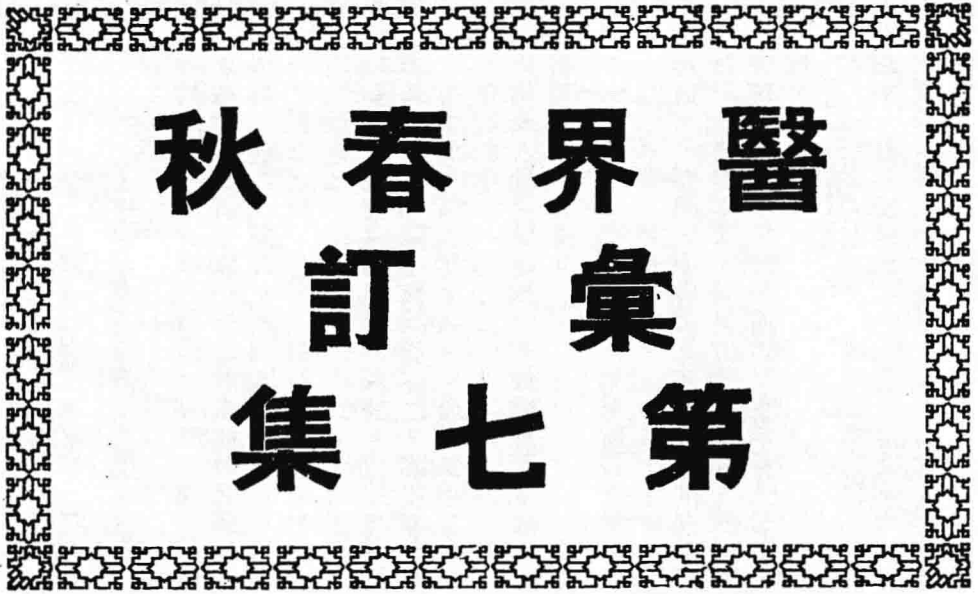 醫界春秋
彙訂
第七集